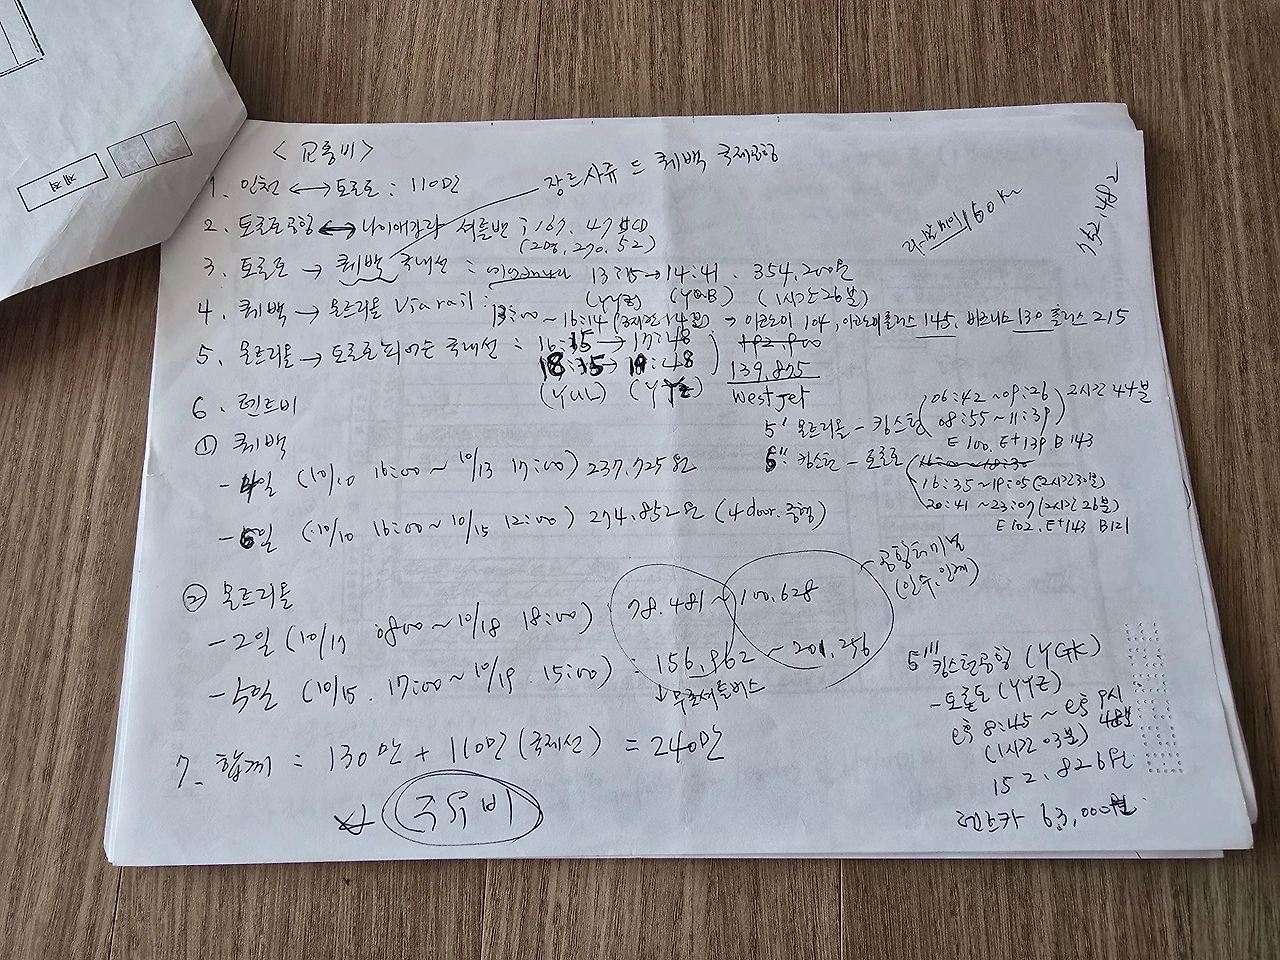 < 교통비 >
장르사쥬 드 퀘백 국제공항
1. 인천 ↔ 토론토 : 110만
2. 토론토공항 ↔ 나이애가라 셔틀밴 : 167. 47
3. 토론토 → 퀘백 국내선 : 13:15 → 14:41. 354,200원
(YYZ) (YQB) (1시간26분)
4. 퀘백 → 몬트리올 Viarail : 13:00 ~ 16:14 (3시간14분) → 이코노미 104, 이코노미플러스 145, 비즈니스 130 플러스 215
5. 몬트리올 → 토론토 국내선 : 16:15 → 17:48
18:15 → 19:48
(YUL) (YYZ)
192,900
139,875
Westjet
6. 렌트비
① 퀘백
- 4일 (10/10 16:00 ~ 10/13 17:00) 237,725원
- 6일 (10/10 16:00 ~ 10/15 12:00) 274,852원 (4door.중형)
② 몬트리올
- 2일 (10/17 08:00 ~ 10/18 18:00) : 78.481 ~ 100.628
- 4일 (10/15. 17:00 ~ 10/19. 15:00) : 156,962 ~ 201,256
↓ 무료셔틀버스
공항터미널
(인수.인계)
7. 합계 : 130만 + 110만 (국제선) = 240만
주유비
150km
752.48
5' 몬트리올 - 킹스턴
06:42 ~ 09:26
08:55 ~ 11:39
2시간 44분
E 100. E+ 139 B 143
5'' 킹스턴 - 토론토
16:35 ~ 19:05 (2시간30분)
20:41 ~ 23:07 (2시간 26분)
E 102. E+ 143 B 121
5''' 킹스턴공항 (YGK)
- 토론토 (YYZ)
8:45 ~ 9시 48분
(1시간 03분)
152.826원
렌트카 63,000원